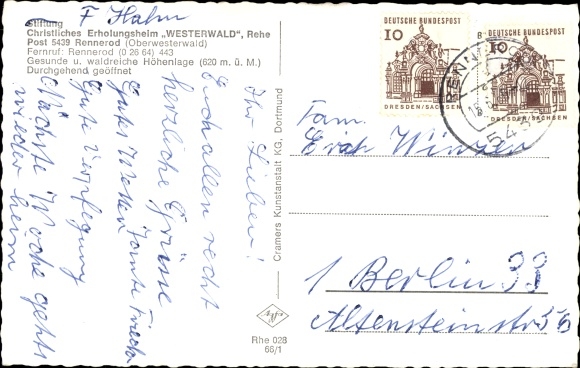 F Hahn
Stiftung
Christliches Erholungsheim „WESTERWALD", Rehe
Post 5439 Rennerod (Oberwesterwald)
Fernruf: Rennerod (0 26 64) 443
Gesunde u. waldreiche Höhenlage (620 m. ü. M.)
Durchgehend geöffnet
Ihr Lieben!
Euch allen recht
herzliche Grüsse
Gutes Wetter
Gute Verpflegung
Nächste Woche gehts
wieder heim
Cramers Kunstanstalt KG, Dortmund
Agfa
Rhe 028
66/1
DEUTSCHE BUNDESPOST
10
DRESDEN/SACHSEN
DEUTSCHE BUNDESPOST
10
DRESDEN/SACHSEN
Fam.
Erich Winzen
1 Berlin 33
Altensteinstr 56